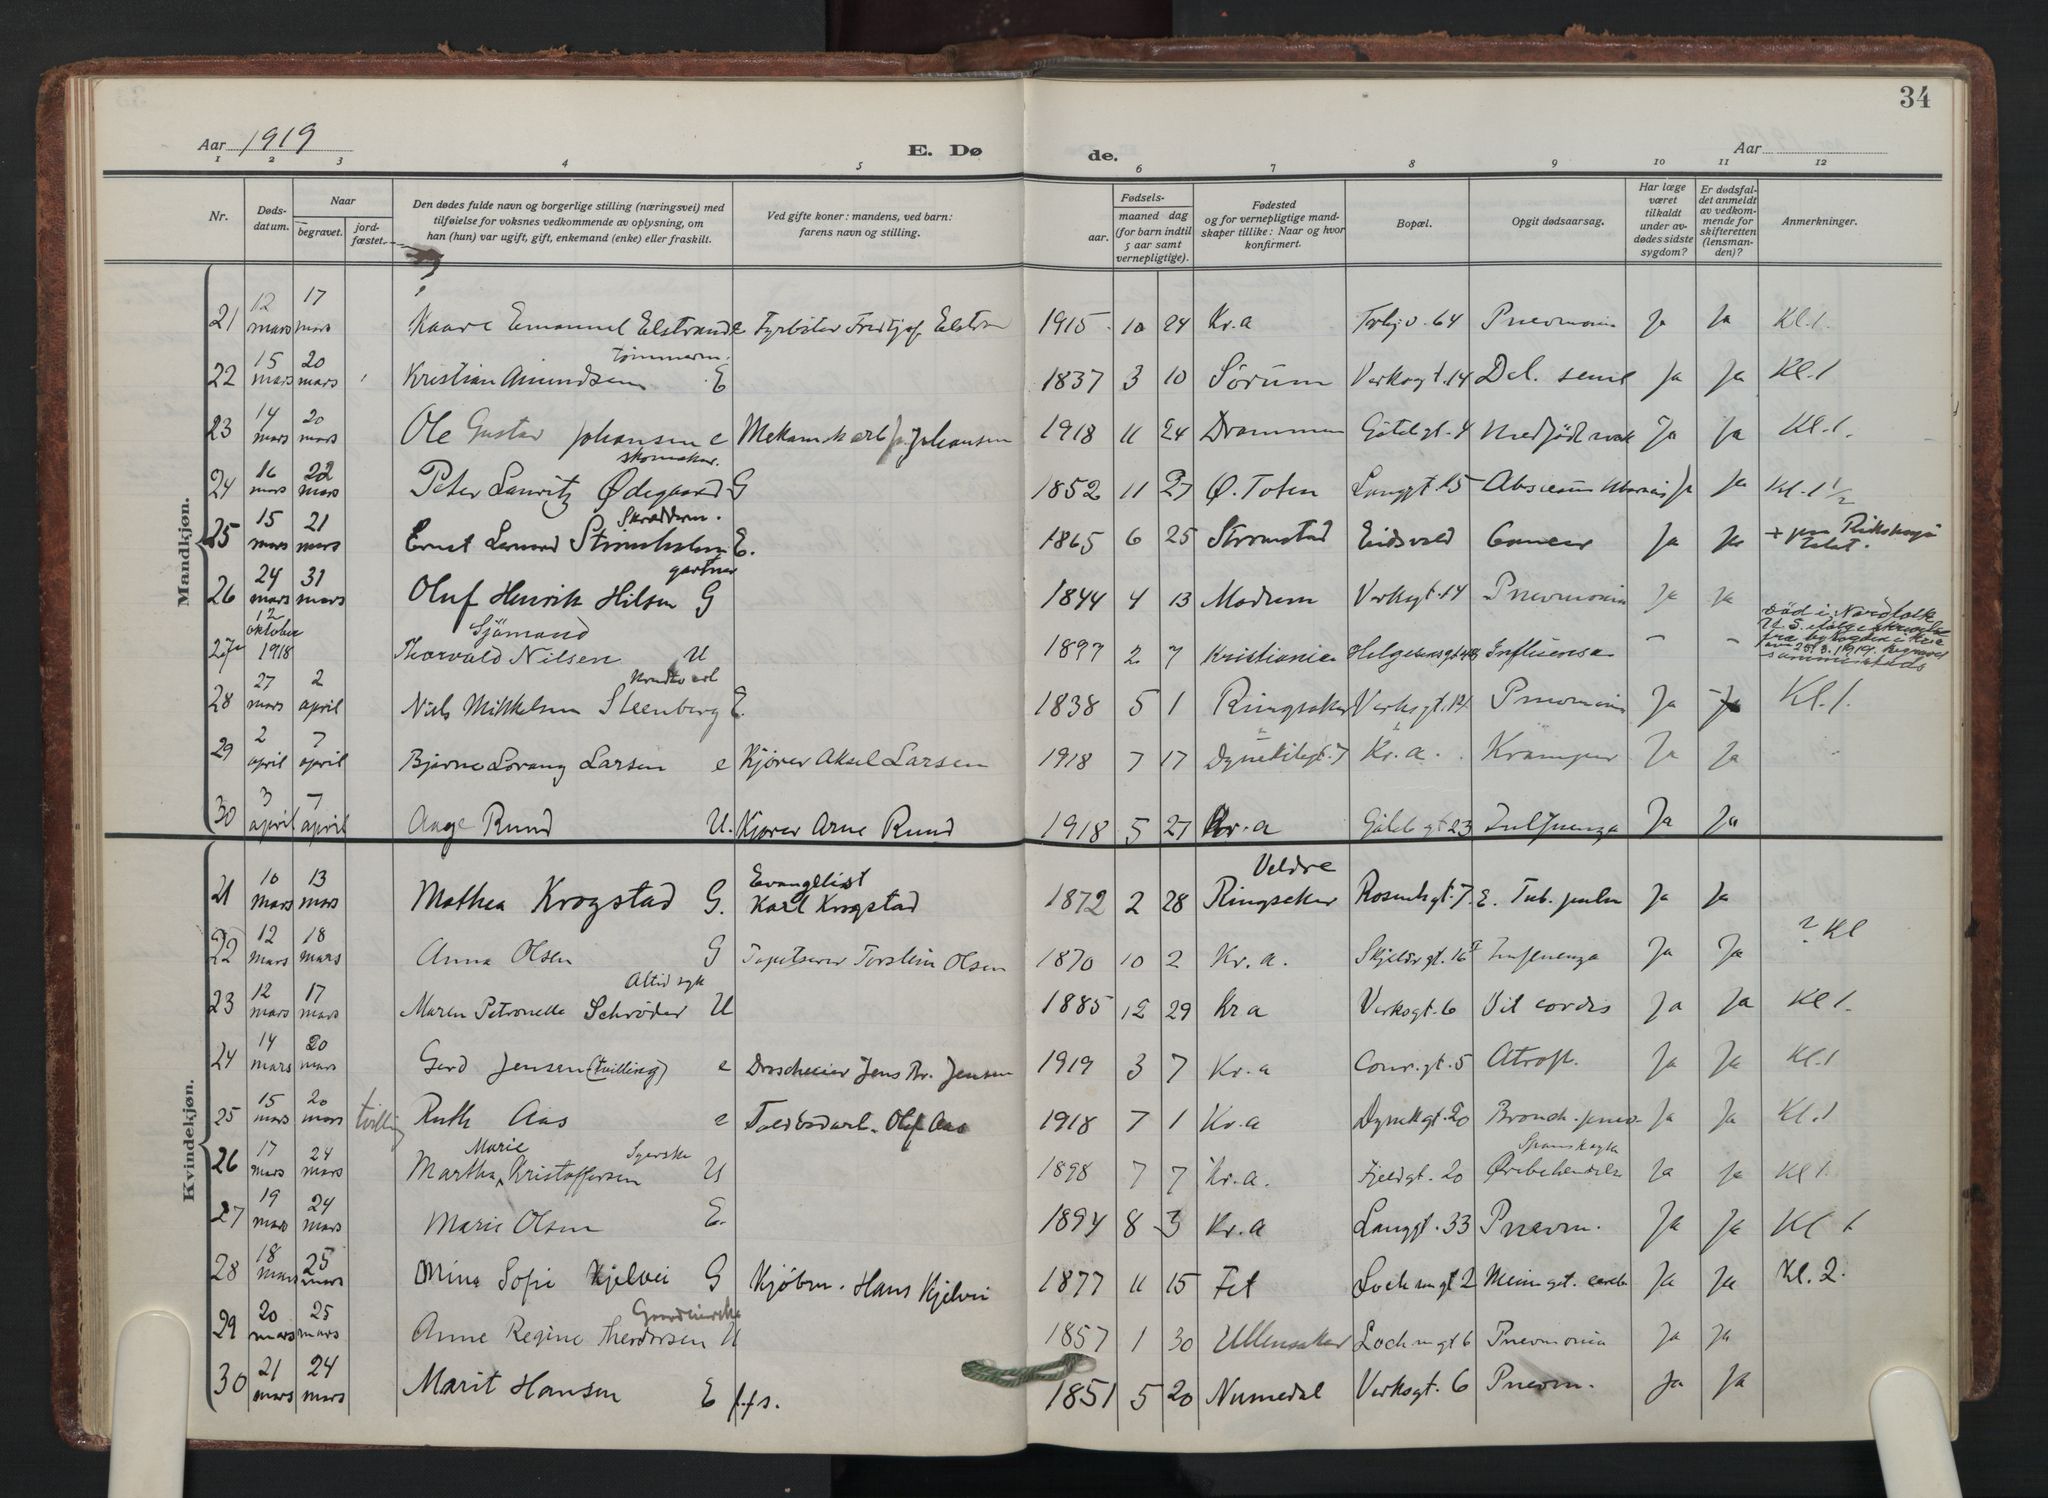 34
Aar 1919
E. Dø
de.
Aar
1 2 3 4 5 6 7 8 9 10 11 12
Nr.
Døds-
datum.
Naar
begravet.
jord-
fæstet.
Den dødes fulde navn og borgerlige stilling (næringsvei) med
tilføielse for voksnes vedkommende av oplysning, om
han (hun) var ugift, gift, enkemand (enke) eller fraskilt.
Ved gifte koner: mandens, ved barn:
farens navn og stilling.
Fødsels-
aar.
maaned dag
(for barn indtil
5 aar samt
vernepligtige).
Fødested
og for vernepligtige mand-
skaper tillike: Naar og hvor
konfirmert.
Bopæl.
Opgit dødsaarsag.
Har læge
været
tilkaldt
under av-
dødes sidste
sygdom?
Er dødsfal-
det anmeldt
av vedkom-
mende for
skifteretten
(lensman-
den)?
Anmerkninger.
Mandkjøn.
21 12 mars 17 mars Kaare Emanuel Elstrand e Fyrbøter Fredtjof 1915 10 24 Kr.a 64 Pneumonia Ja Ja Kl.1.
tømmerm.
22 15 mars 20 mars Kristian Amundsen E 1837 3 10 Sørum Verksgt. 14 Deb. senil Ja Ja Kl.1
23 14 mars 20 mars Ole Gustav Johansen e Johansen 1918 11 24 Drammen Göteb gt. 4 Medfödt Ja Ja Kl.1.
skomaker
24 16 mars 22 mars Peter Lauritz Ødegaard G 1852 11 27 Ø. Toten Langgt. 15 Ja Ja Kl. 1 1/2
Skrædderm.
25 15 mars 21 mars Ernst Leonard Strömholm E. 1865 6 25 Strømstad Eidsvold Cancer Ja Ja + paa Rikshospi
talet.
gartner
26 24 mars 31 mars Oluf Henrik Hilsen G 1844 4 13 Modum Verksgt. 14 Pneumonia Ja Ja
Sjömand
27 12 oktober 1918 Thorvald Nilsen U 1897 2 7 Kristiania Helgesensgt Influensa - - Död i Nordfolk
U.S. ifølge skrivelse
fra byfogden i Kr.a
av 25/3. 1919. Begravet
sammesteds
28 27 mars 2 april Niels Mikkelsen Steenberg E. 1838 5 1 Ringsaker Verksgt. 14 Pneumonia Ja Ja Kl.1.
29 2 april 7 april Bjarne Lorang Larsen e Kjører Aksel Larsen 1918 7 17 Dynekilegt. 7 Kr.a. Kramper Ja Ja
30 3 april 7 april Aage Rund U. Kjører Arne Rund 1918 5 27 Kr.a Göteb gt 23 Influenza Ja Ja
Kvindekjøn.
Evangelist Veldre
21 10 mars 13 mars Mathea Krogstad G. Karl Krogstad 1872 2 28 Ringsaker Rosenhgt. 7. E. Tub. pulm Ja Ja
22 12 mars 18 mars Anna Olsen G Tapetserer Torstein Olsen 1870 10 2 Kr.a. Skjeldrgt. 16 Influenza Ja Ja ? Kl
Altid syk
23 12 mars 17 mars Maren Petronelle Schrøder U 1885 12 29 Kr a Verksgt. 6 Vit cordis Ja Ja Kl 1.
24 14 mars 20 mars Gerd Jensen (tvilling) e Droscheeier Jens Kr. Jensen 1919 3 7 Kr.a Conr.gt. 5 Atrof. Ja Ja Kl.1
25 15 mars 20 mars tvilling Ruth Aas e Toldbodarb. Olaf Aas 1918 7 1 Kr.a Dynekgt. 20 Bronch. pneu. Ja Ja Kl.1
Marie Syerske Spanskesyke
26 17 mars 24 mars Martha Kristoffersen U 1898 7 7 Kr.a. Fjeldgt. 20 Ja Ja Kl 1.
27 19 mars 24 mars Marie Olsen E. 1894 8 3 Kr.a Langgt. 33 Pneum. Ja Ja Kl 1
28 18 mars 25 mars Mina Sofie Kjelvei G Kjöbm. Hans Kjelvei 1877 11 15 Fet Lochmgt 2 Meningit. cereb Ja Ja Kl. 2.
29 20 mars 25 mars Anne Regine Theodorsen U 1857 1 30 Ullensaker Lochmgt 6 Pneumonia Ja Ja
30 21 mars 24 mars Marit Hansen E f.fs. 1851 5 20 Numedal Verksgt. 6 Pneum. Ja Ja